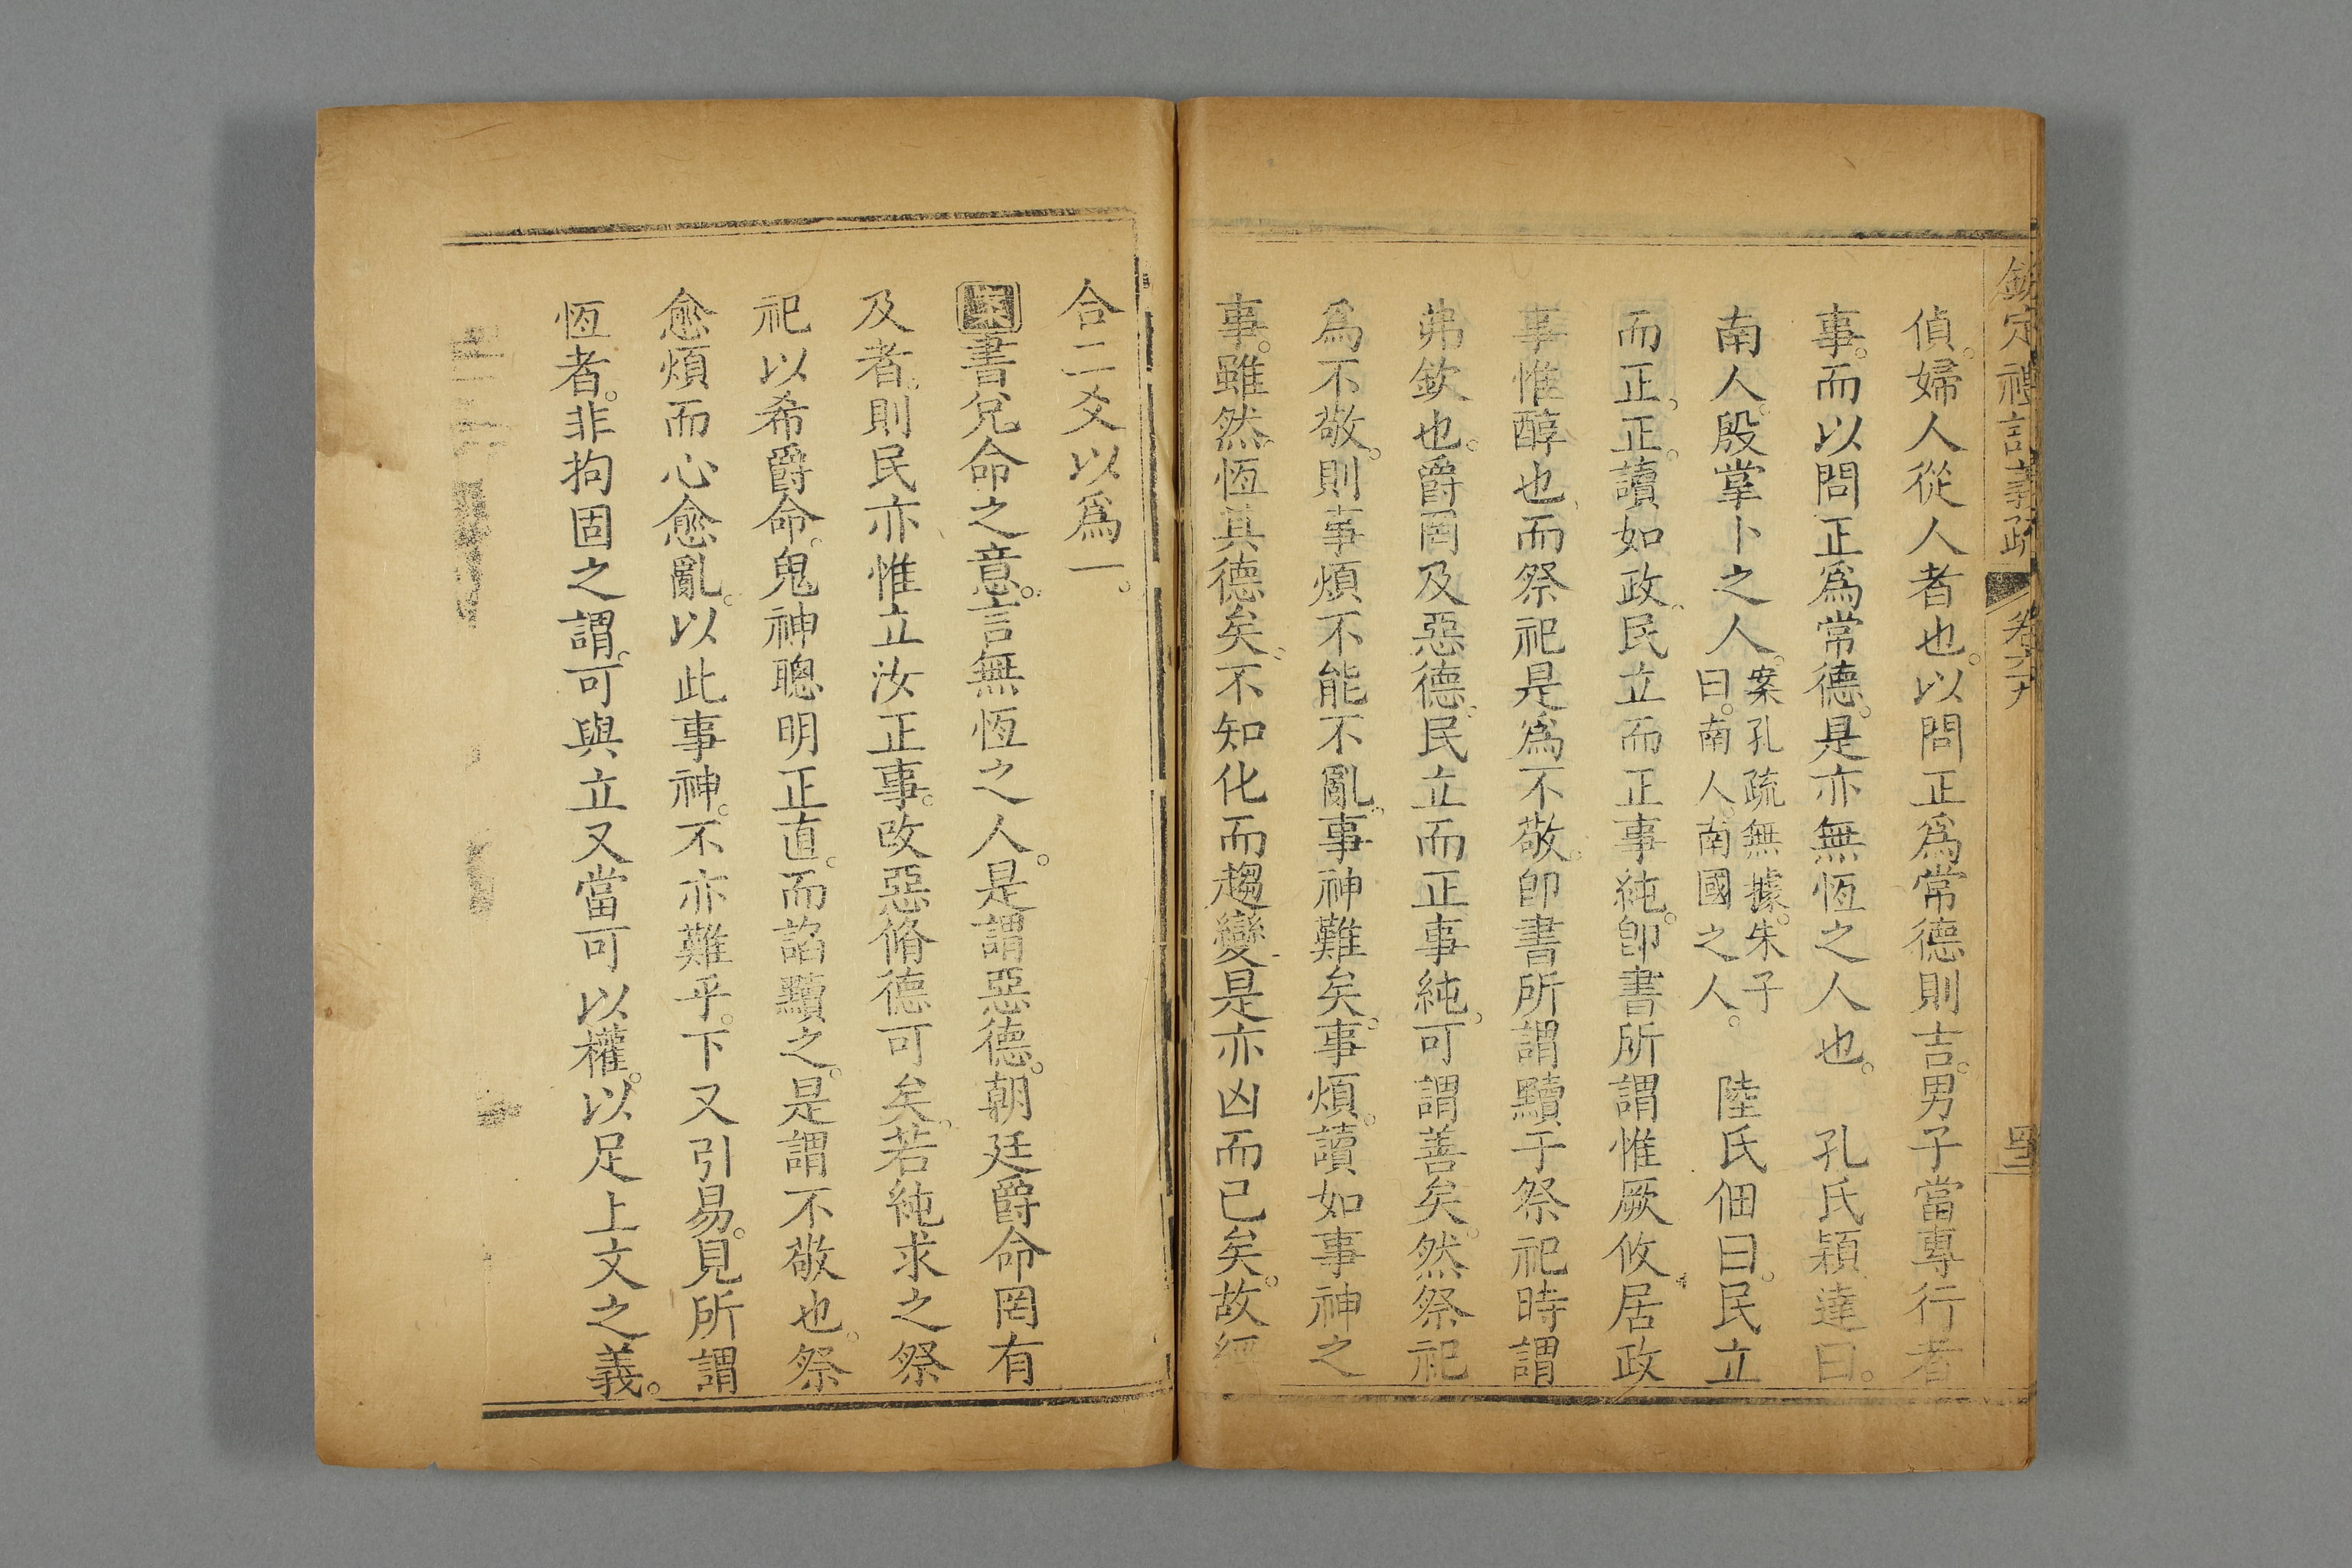 欽定禮記義疏 卷六十九
偵。婦人從人者也。以問正爲常德則吉。男子當專行者
事。而以問正爲常德。是亦無恆之人也。 孔氏穎達曰。
南人。殷掌卜之人。案孔疏無據。朱子曰。南人。南國之人。 陸氏佃曰。民立
而正。正。讀如政。民立而正事純。卽書所謂惟厥攸居。政
事惟醇也。而祭祀是爲不敬。卽書所謂黷于祭祀時謂
弗欽也。爵罔及惡德。民立而正事純。可謂善矣。然祭祀
爲不敬。則事煩不能不亂。事神難矣。事煩。讀如事神之
事。雖然。恆其德矣。不知化而趨變。是亦凶而已矣。故經
合二爻以爲一。
案書兌命之意。言無恆之人。是謂惡德。朝廷爵命罔有
及者。則民亦惟立汝正事。改惡脩德可矣。若純求之祭
祀以希爵命。鬼神聰明正直。而諂黷之。是謂不敬也。祭
愈煩而心愈亂。以此事神。不亦難乎。下又引易。見所謂
恆者。非拘固之謂。可與立又當可以權。以足上文之義。